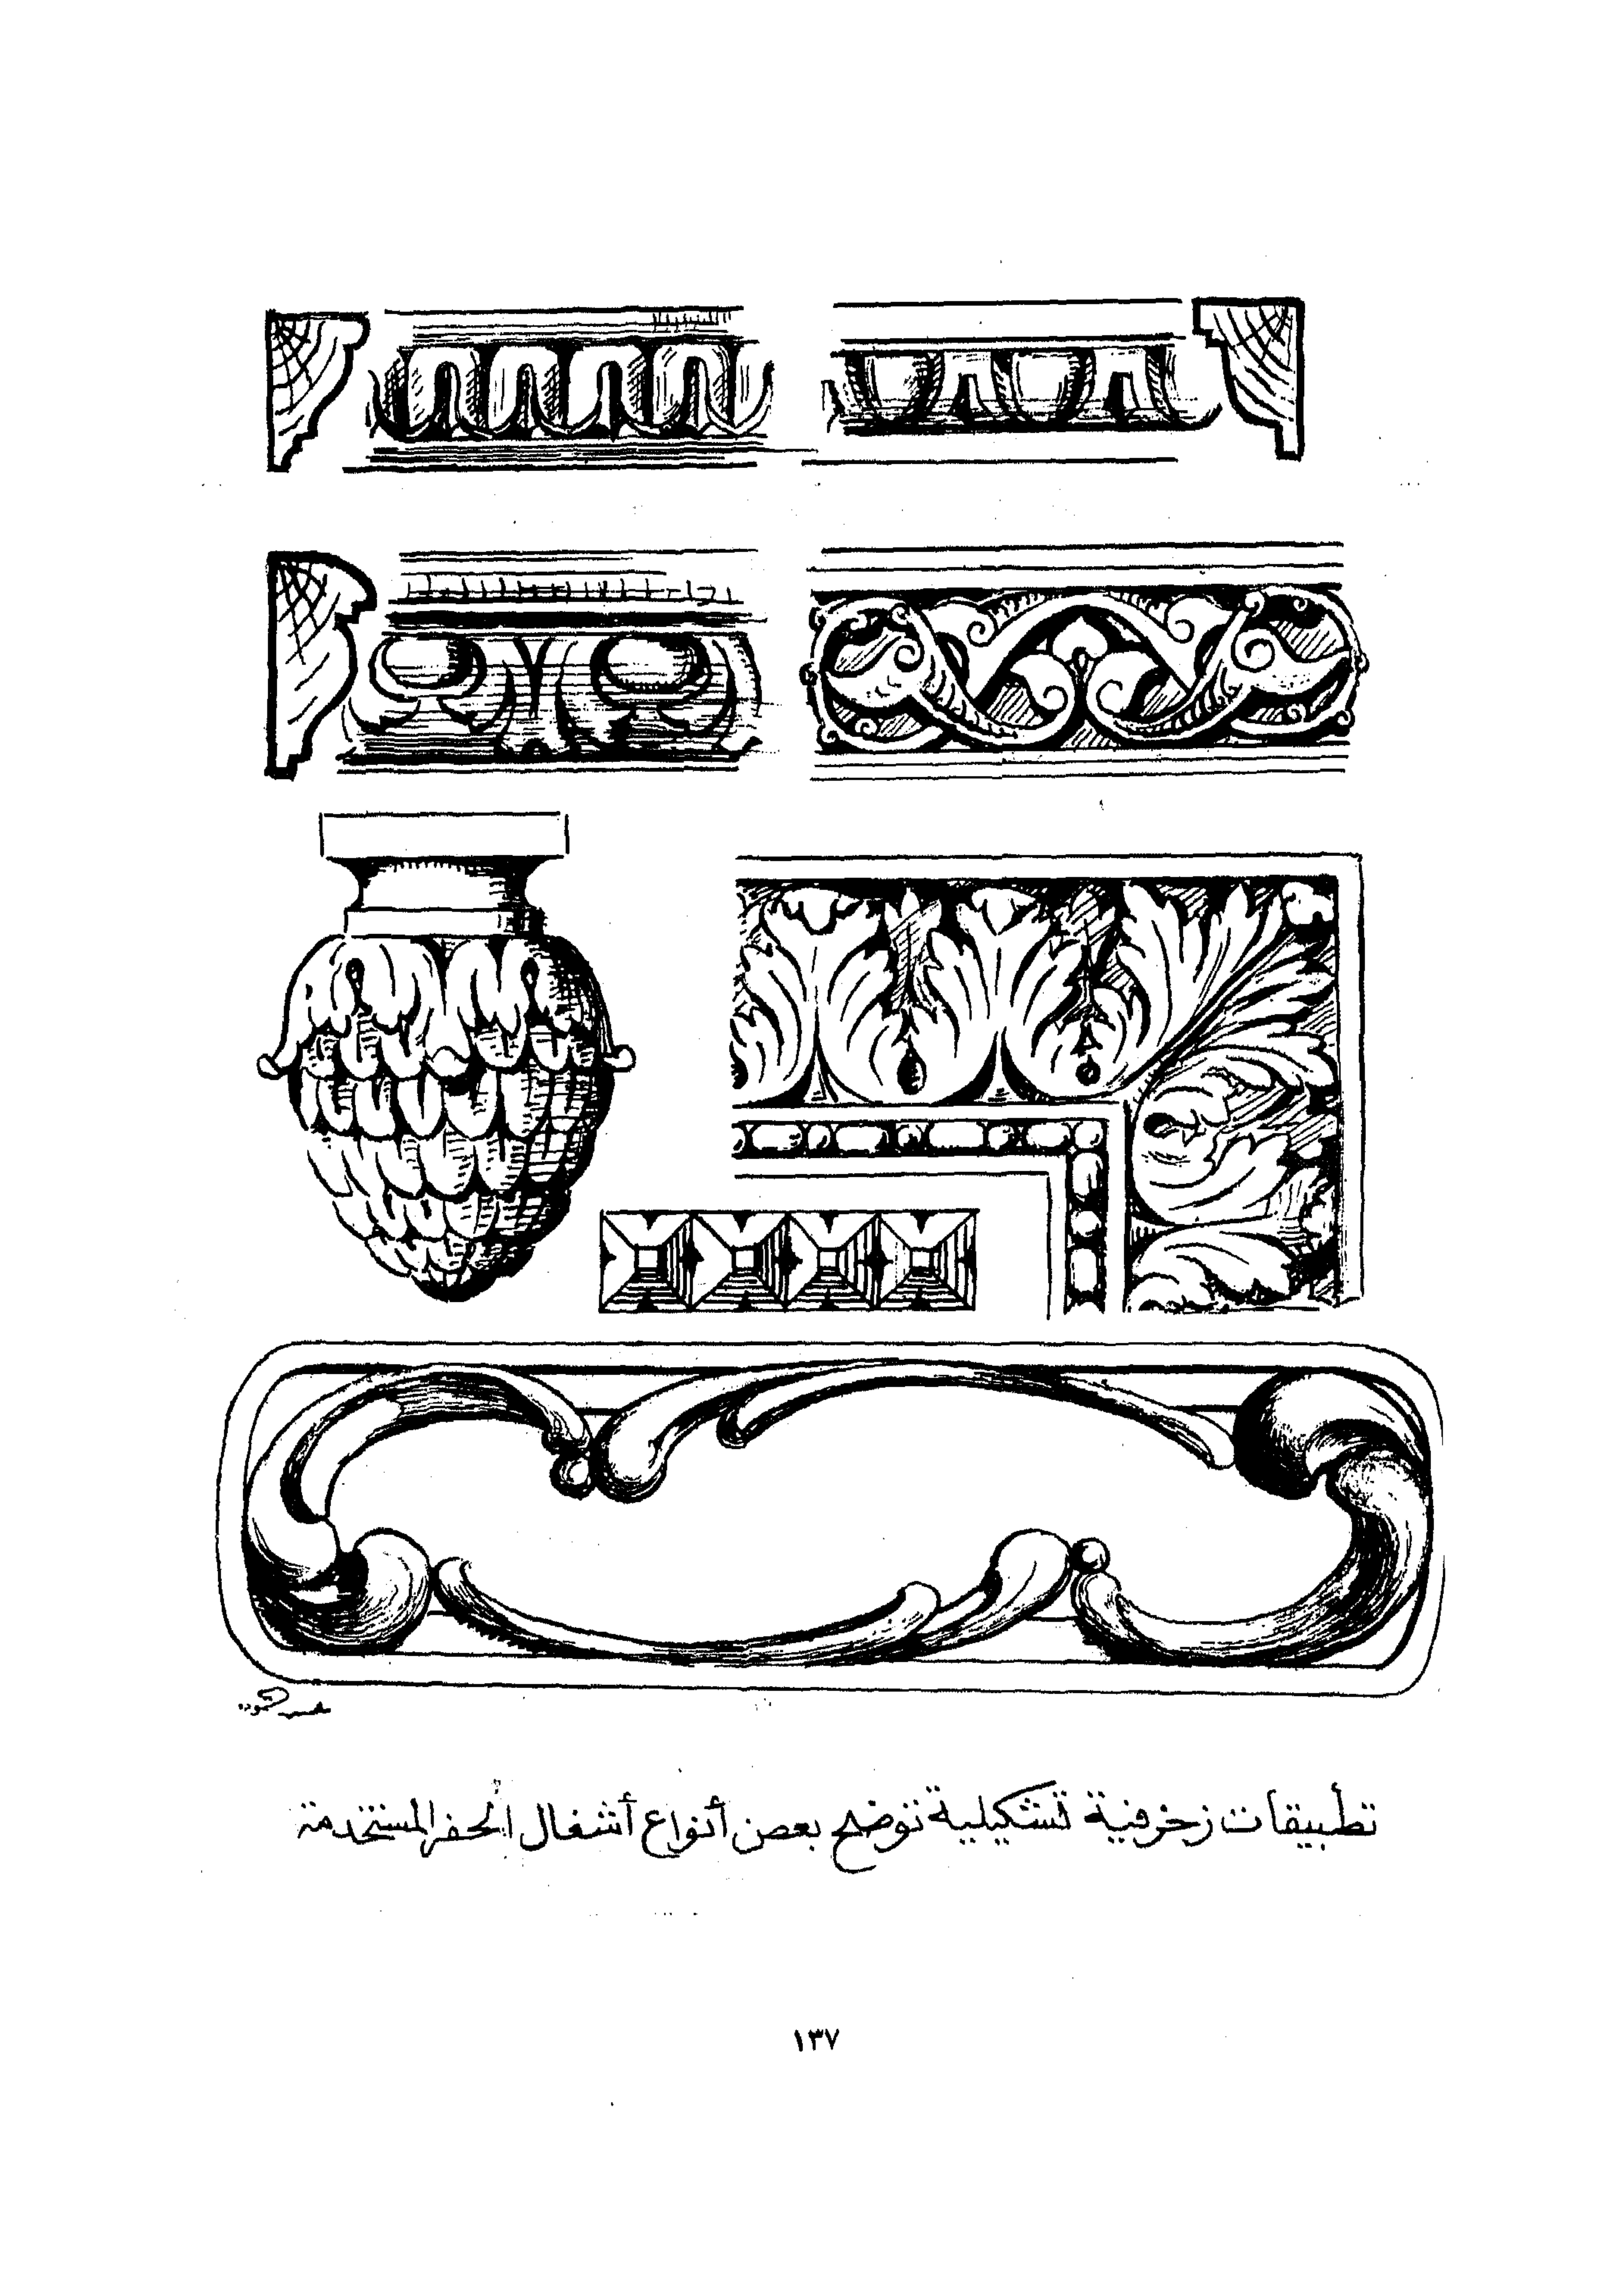 تطبيقات زخرفية تشكيلية توضح بعض أنواع أشغال الحفر المستخدمة
١٣٧